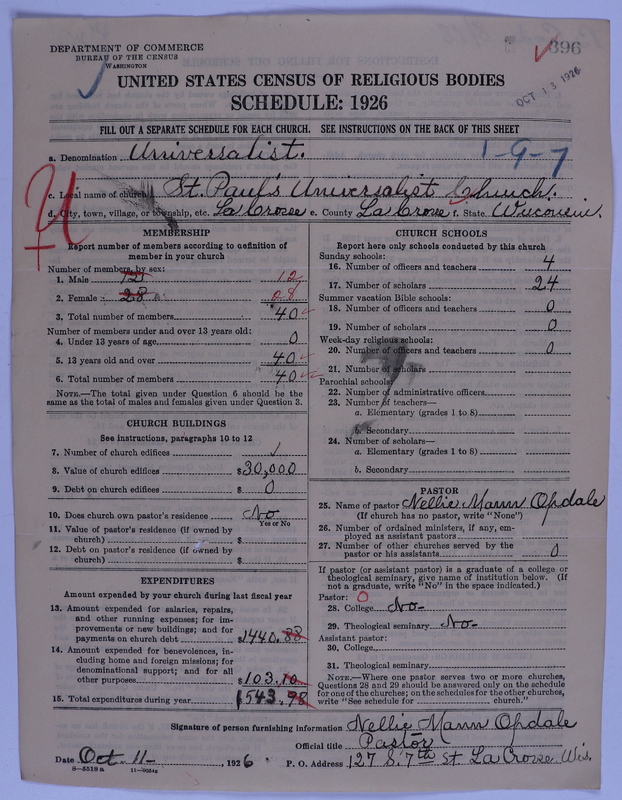 DEPARTMENT OF COMMERCE
BUREAU OF THE CENSUS
WASHINGTON
396
OCT 13 1926
UNITED STATES CENSUS OF RELIGIOUS BODIES
SCHEDULE: 1926
FILL OUT A SEPARATE SCHEDULE FOR EACH CHURCH. SEE INSTRUCTIONS ON THE BACK OF THIS SHEET
a. Denomination Universalist. 1-9-7
c. Local name of church St. Paul's Universalist Church.
d. City, town, village, or township, etc. La Crosse e. County La Crosse f. State Wisconsin.
MEMBERSHIP
Report number of members according to definition of
member in your church
Number of members, by sex:
1. Male 12 12
2. Female 28 28
3. Total number of members 40
Number of members under and over 13 years old:
4. Under 13 years of age 0
5. 13 years old and over 40
6. Total number of members 40
NOTE.—The total given under Question 6 should be
same as the total of males and females given under Question 3.
CHURCH BUILDINGS
See instructions, paragraphs 10 to 12
7. Number of church edifices 1
8. Value of church edifices $30,000
9. Debt on church edifices $ 0
10. Does church own pastor's residence No
Yes or No
11. Value of pastor's residence (if owned by
church) $
12. Debt on pastor's residence (if owned by
church) $
EXPENDITURES
Amount expended by your church during last fiscal year
13. Amount expended for salaries, repairs,
and other running expenses; for im-
provements or new buildings; and for
payments on church debt $1440.88
14. Amount expended for benevolences, in-
cluding home and foreign missions; for
denominational support; and for all
other purposes $103.10
15. Total expenditures during year $1543.98
CHURCH SCHOOLS
Report here only schools conducted by this church
Sunday schools:
16. Number of officers and teachers 4
17. Number of scholars 24
Summer vacation Bible schools:
18. Number of officers and teachers 0
19. Number of scholars 0
Week-day religious schools:
20. Number of officers and teachers 0
21. Number of scholars
Parochial schools:
22. Number of administrative officers
23. Number of teachers—
a. Elementary (grades 1 to 8)
b. Secondary
24. Number of scholars—
a. Elementary (grades 1 to 8)
b. Secondary
PASTOR
25. Name of pastor Nellie Mann Opdale
(If church has no pastor, write "None")
26. Number of ordained ministers, if any, em-
ployed as assistant pastors
27. Number of other churches served by the
pastor or his assistants 0
If pastor (or assistant pastor) is a graduate of a college or
theological seminary, give name of institution below. (If
not a graduate, write "No" in the space indicated.)
Pastor: 0
28. College No-
29. Theological seminary No-
Assistant pastor:
30. College
31. Theological seminary
NOTE.—Where one pastor serves two or more churches,
Questions 28 and 29 should be answered only on the schedule
for one of the churches; on the schedules for the other churches,
write "See schedule for church."
Signature of person furnishing information Nellie Mann Opdale
Official title Pastor
Date Oct. 11-, 1926. P. O. Address 127 S. 7th St La Crosse Wis.
8—5518 a 11—9054g